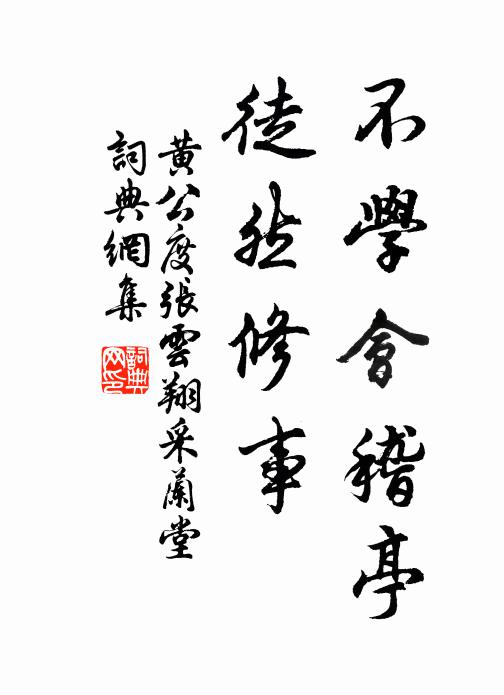 不學會稽亭
徒然修事
黃公度張雲翔采蘭堂
詞典網集
詞典網印